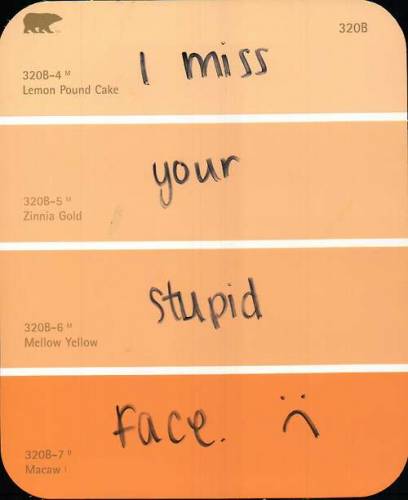 320B
I miss
320B-4 M
Lemon Pound Cake
your
320B-5 M
Zinnia Gold
stupid
320B-6 M
Mellow Yellow
Face. :(
320B-7 D
Macaw